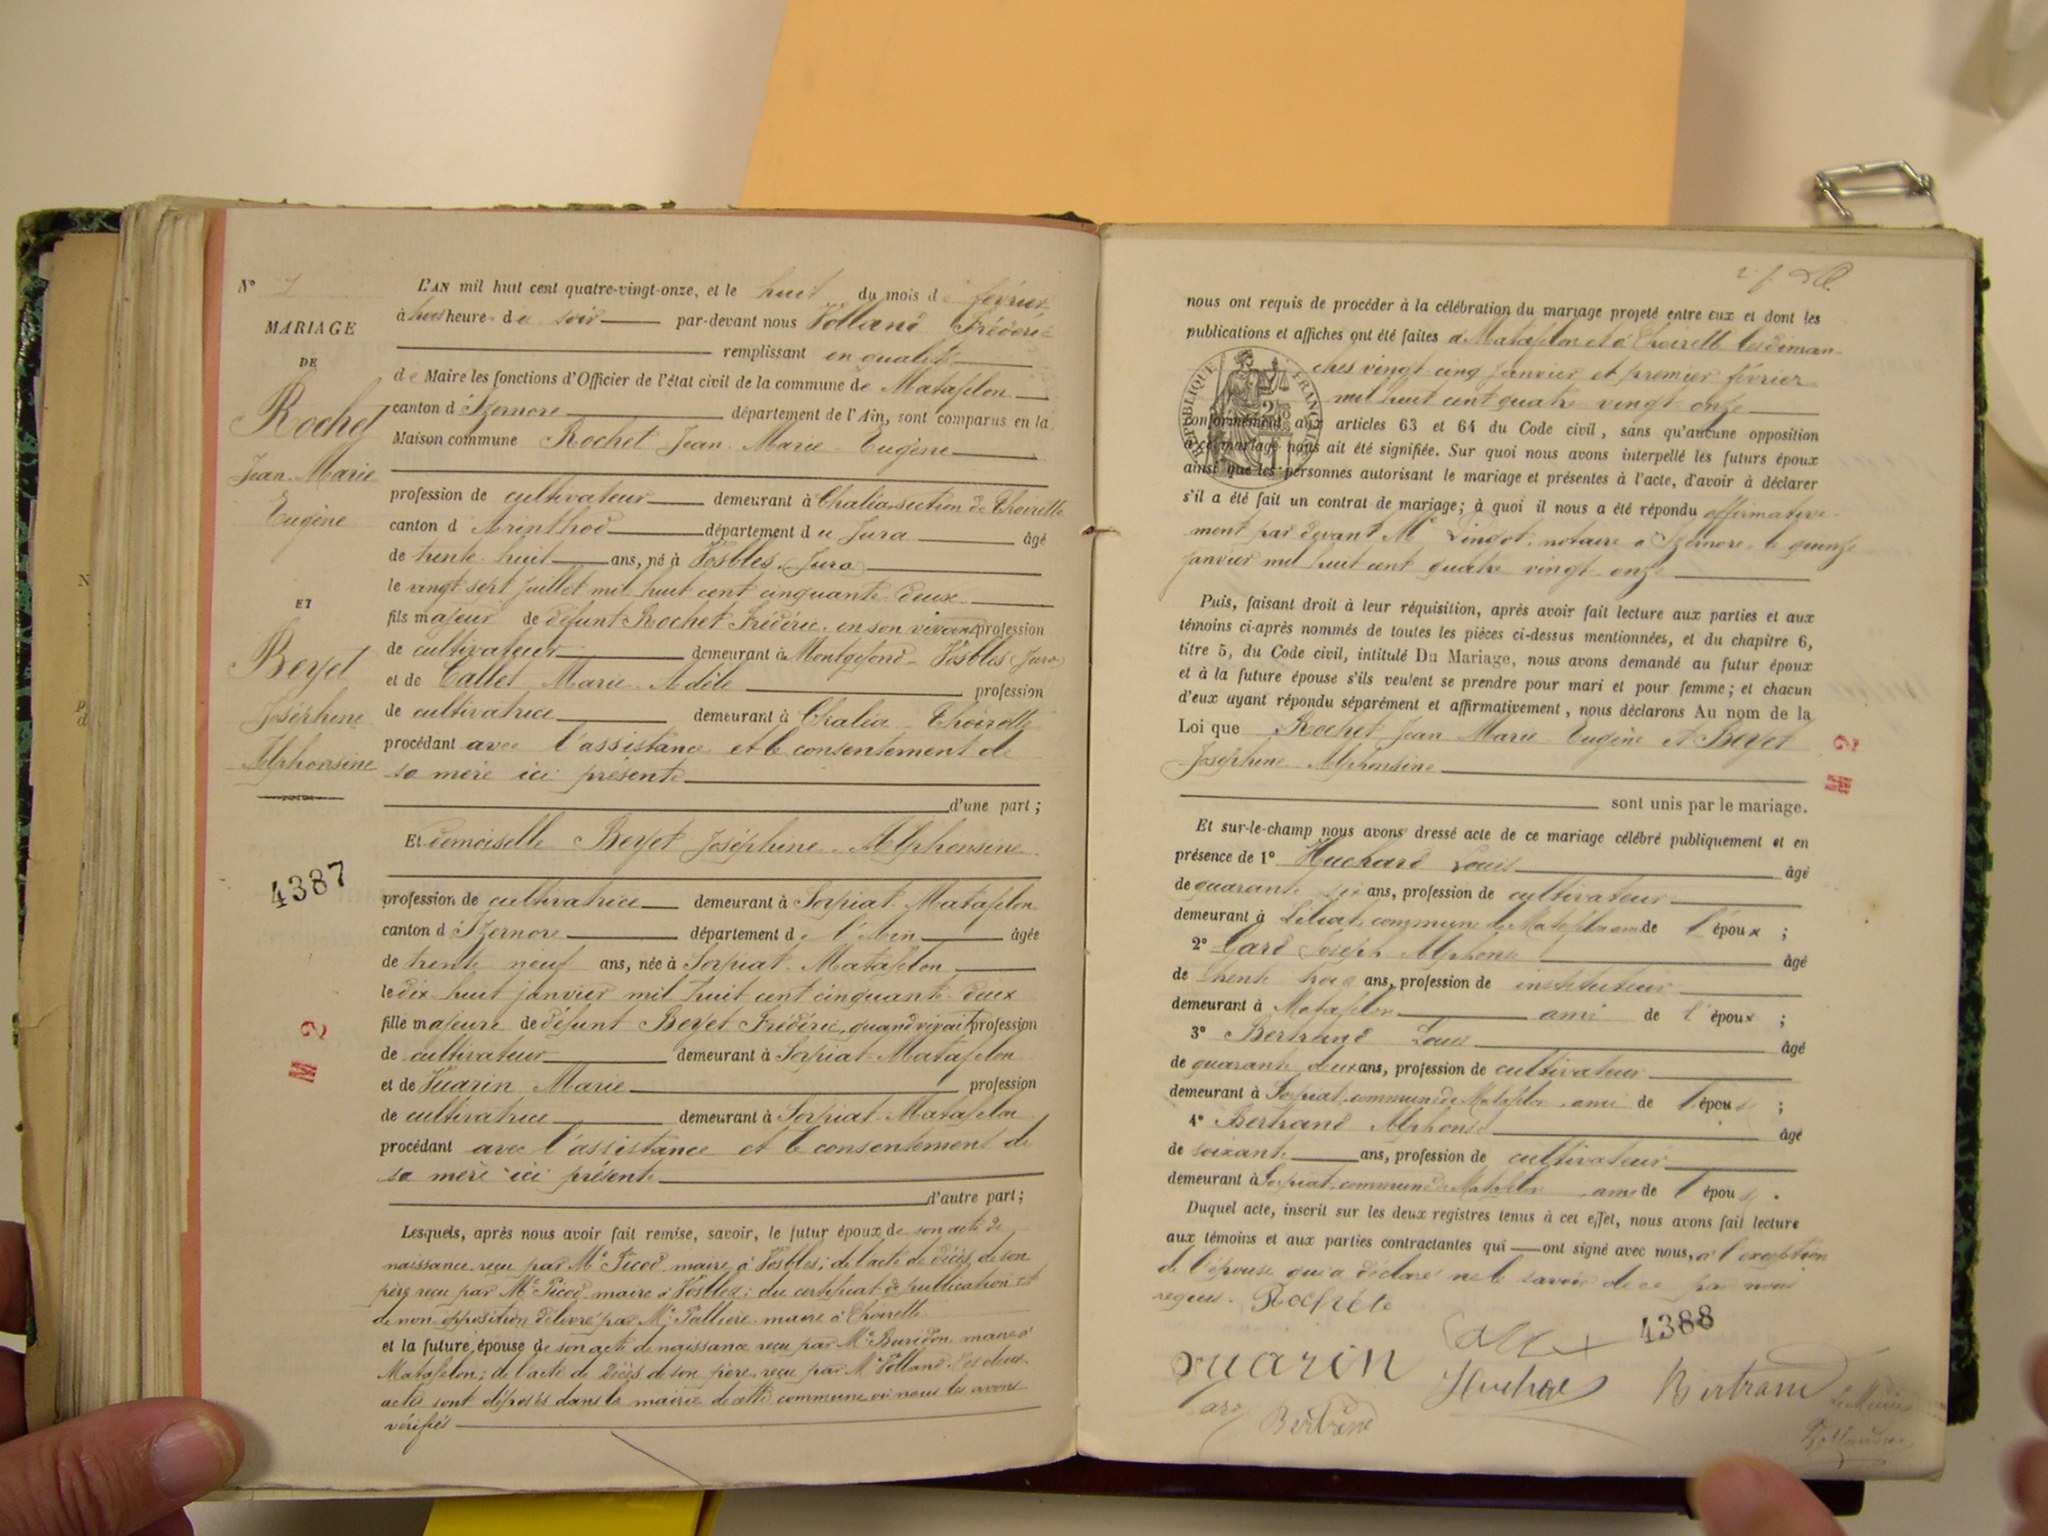 N°
MARIAGE
DE
Rochet
Jean-Marie
Eugène
ET
Beyet
Joséphine
Alphonsine
4387
M 2
L'AN mil huit cent quatre-vingt-onze, et le huit du mois de février
à heure du soir par-devant nous Volland Frédéric
remplissant en qualité
de Maire les fonctions d'Officier de l'état civil de la commune de Matafelon
canton d'Izernore département de l'Ain, sont comparus en la
Maison commune Rochet Jean-Marie-Eugène
profession de cultivateur demeurant à Chalia, section de Thoirette
canton d'Arinthod département du Jura âgé
de trente-huit ans, né à Vosbles (Jura)
le vingt-sept juillet mil huit cent cinquante-deux
fils majeur de défunt Rochet Frédéric, en son vivant profession
de cultivateur demeurant à Montgefond-Vosbles (Jura)
et de Callet Marie-Adèle profession
de cultivatrice demeurant à Chalia-Thoirette
procédant avec l'assistance et le consentement de
sa mère ici présente
d'une part;
Et demoiselle Beyet Joséphine-Alphonsine
profession de cultivatrice demeurant à Sorpiat-Matafelon
canton d'Izernore département de l'Ain âgée
de trente neuf ans, née à Sorpiat-Matafelon
le dix-huit janvier mil huit cent cinquante-deux
fille majeure de défunt Beyet Frédéric, quand vivait profession
de cultivateur demeurant à Sorpiat-Matafelon
et de Vuarin Marie profession
de cultivatrice demeurant à Sorpiat-Matafelon
procédant avec l'assistance et le consentement de
sa mère ici présente
d'autre part;
Lesquels, après nous avoir fait remise, savoir, le futur époux de son acte de
naissance reçu par Mr Picod maire à Vosbles; de l'acte de décès de son
père reçu par Mr Picod maire à Vosbles; du certificat de publication et
de non opposition délivré par Mr Pallière maire à Thoirette
et la future épouse de son acte de naissance reçu par Mr Buridon maire à
Matafelon; de l'acte de décès de son père, reçu par Mr Volland. Ces deux
actes sont déposés dans la mairie de cette commune où nous les avons
vérifiés
nous ont requis de procéder à la célébration du mariage projeté entre eux et dont les
publications et affiches ont été faites à Matafelon et à Thoirette les diman-
ches vingt-cinq janvier et premier février
mil huit cent quatre vingt onze
RÉPUBLIQUE FRANÇAISE
conformément aux articles 63 et 64 du Code civil, sans qu'aucune opposition
à ce mariage nous ait été signifiée. Sur quoi nous avons interpellé les futurs époux
ainsi que les personnes autorisant le mariage et présentes à l'acte, d'avoir à déclarer
s'il a été fait un contrat de mariage; à quoi il nous a été répondu affirmative-
ment par devant Me Lindot, notaire à Izernore, le quinze
janvier mil huit cent quatre vingt-onze
Puis, faisant droit à leur réquisition, après avoir fait lecture aux parties et aux
témoins ci-après nommés de toutes les pièces ci-dessus mentionnées, et du chapitre 6,
titre 5, du Code civil, intitulé Du Mariage, nous avons demandé au futur époux
et à la future épouse s'ils veulent se prendre pour mari et pour femme; et chacun
d'eux ayant répondu séparément et affirmativement, nous déclarons Au nom de la
Loi que Rochet Jean-Marie-Eugène et Beyet
Joséphine-Alphonsine
sont unis par le mariage.
M 2
Et sur-le-champ nous avons dressé acte de ce mariage célébré publiquement et en
présence de 1° Huchard Louis âgé
de quarante six ans, profession de cultivateur
demeurant à commune de Matafelon ami de l'époux;
2° Card Joseph Alphonse âgé
de trente trois ans, profession de instituteur
demeurant à Matafelon ami de l'époux;
3° Bertrand Louis âgé
de quarante deux ans, profession de cultivateur
demeurant à Sorpiat commune de Matafelon, ami de l'épou;
4° Bertrand Alphonse âgé
de soixante ans, profession de cultivateur
demeurant à Sorpiat, commune de Matafelon ami de l'épou.
Duquel acte, inscrit sur les deux registres tenus à cet effet, nous avons fait lecture
aux témoins et aux parties contractantes qui ont signé avec nous, à l'exception
de l'épouse qui a déclaré ne le savoir de ce par nous
requis. Rochet
4388
Vuarin Huchard Bertrand Le Maire
Card Bertrand Volland